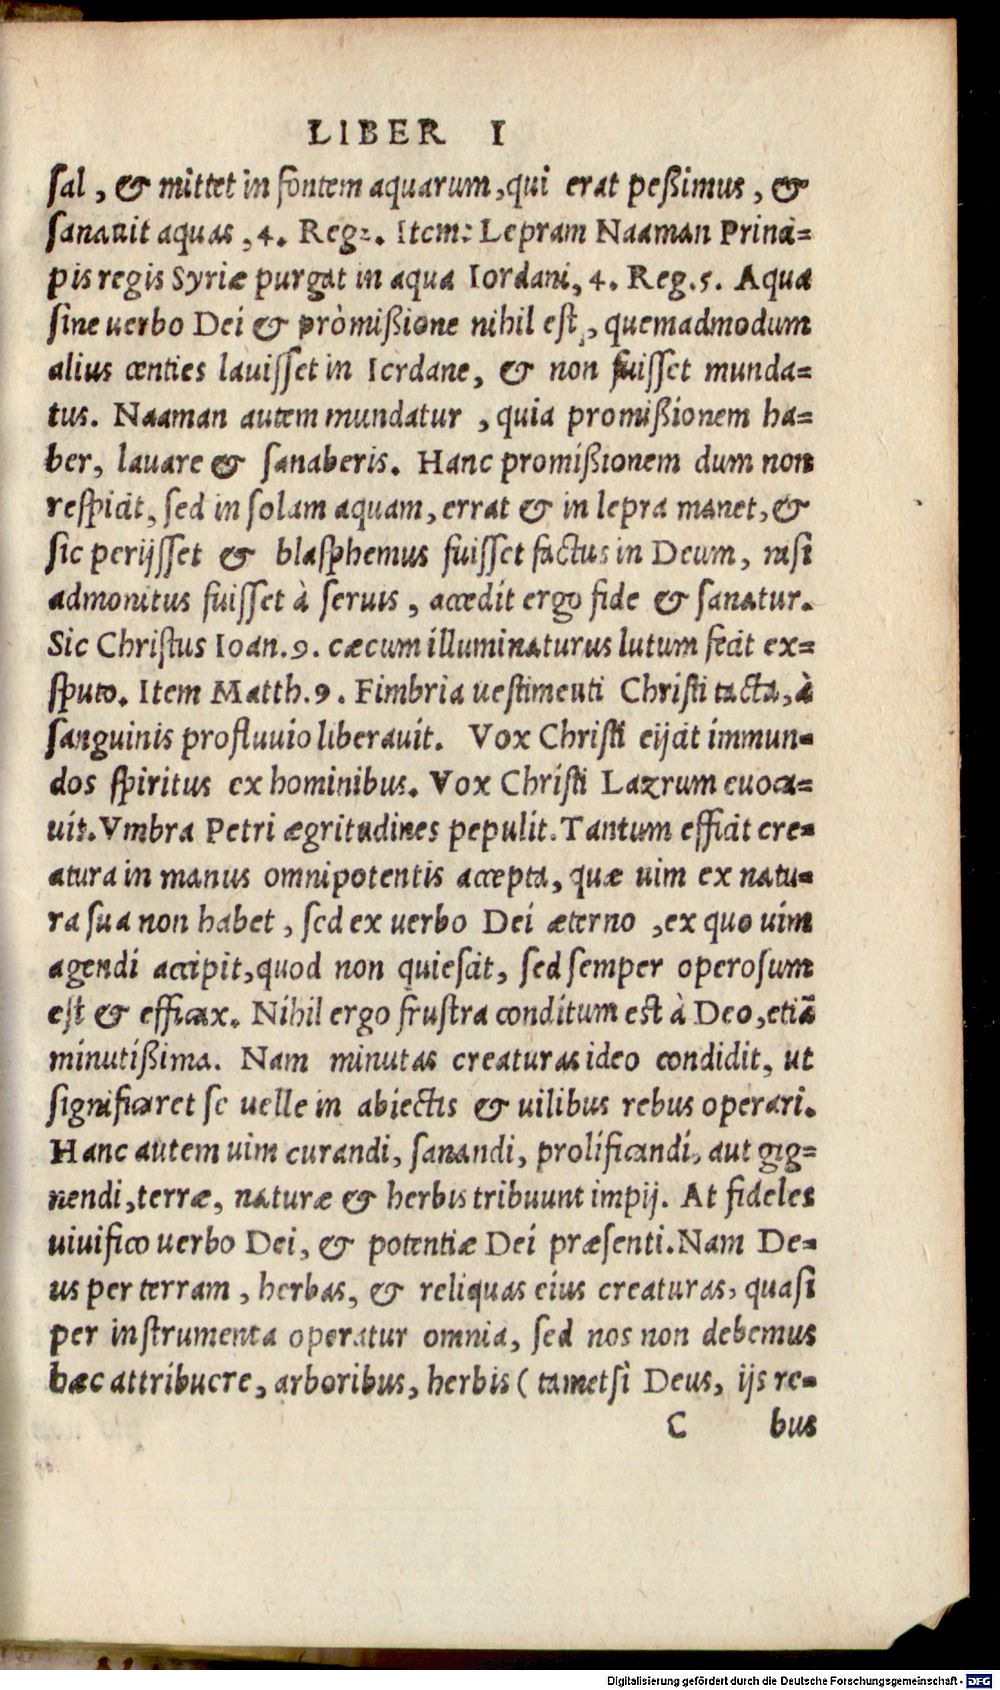 LIBER I
sal, & mittet in fontem aquarum, qui erat peßimus, &
sanauit aquas, 4. Reg2. Item: Lepram Naaman Princi=
pis regis Syriæ purgat in aqua Iordani, 4. Reg. 5. Aqua
sine uerbo Dei & pròmißione nihil est, quemadmodum
alius centies lauisset in Iordane, & non fuisset munda=
tus. Naaman autem mundatur, quia promißionem ha=
ber, lauare & sanaberis. Hanc promißionem dum non
respicit, sed in solam aquam, errat & in lepra manet, &
sic perijsset & blasphemus fuisset factus in Deum, nisi
admonitus fuisset à seruis, accedit ergo fide & sanatur.
Sic Christus Ioan. 9. cæcum illuminaturus lutum fecit ex=
sputo. Item Matth. 9. Fimbria uestimenti Christi tacta, à
sanguinis profluuio liberauit. Vox Christi eijcit immun=
dos spiritus ex hominibus. Vox Christi Lazrum euoca=
uit. Vmbra Petri ægritudines pepulit. Tantum efficit cre=
atura in manus omnipotentis accepta, quæ uim ex natu=
ra sua non habet, sed ex uerbo Dei æterno, ex quo uim
agendi accipit, quod non quiescit, sed semper operosum
est & efficax. Nihil ergo frustra conditum est à Deo, etiã
minutißima. Nam minutas creaturas ideo condidit, ut
significaret se uelle in abiectis & uilibus rebus operari.
Hanc autem uim curandi, sanandi, prolificandi, aut gig=
nendi, terræ, naturæ & herbis tribuunt impij. At fideles
uiuifico uerbo Dei, & potentiæ Dei præsenti. Nam De=
us per terram, herbas, & reliquas eius creaturas, quasi
per instrumenta operatur omnia, sed nos non debemus
hæc attribucre, arboribus, herbis ( tametsi Deus, ijs re=
C bus
Digitalisierung gefördert durch die Deutsche Forschungsgemeinschaft - DFG